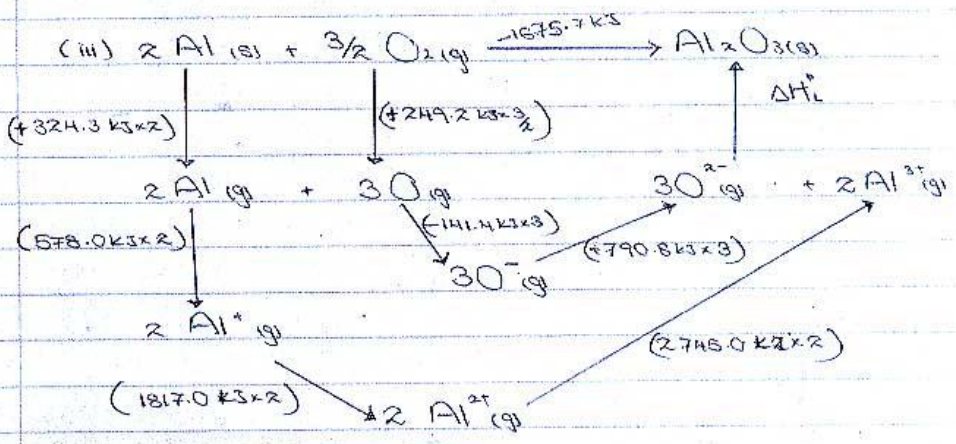 -1675.7 kJ
(iii) 2 Al (s) + 3/2 O2(g) → Al2O3(s)
ΔH°L
(+324.3 kJ×2) (+249.2 kJ×3/2)
2 Al (g) + 3O (g) 3O²⁻(g) + 2 Al³⁺(g)
(578.0kJ×2) (-141.4kJ×3) (+790.8kJ×3)
3O⁻(g)
2 Al⁺ (g)
(2745.0 kJ×2)
(1817.0 kJ×2)
2 Al²⁺ (g)